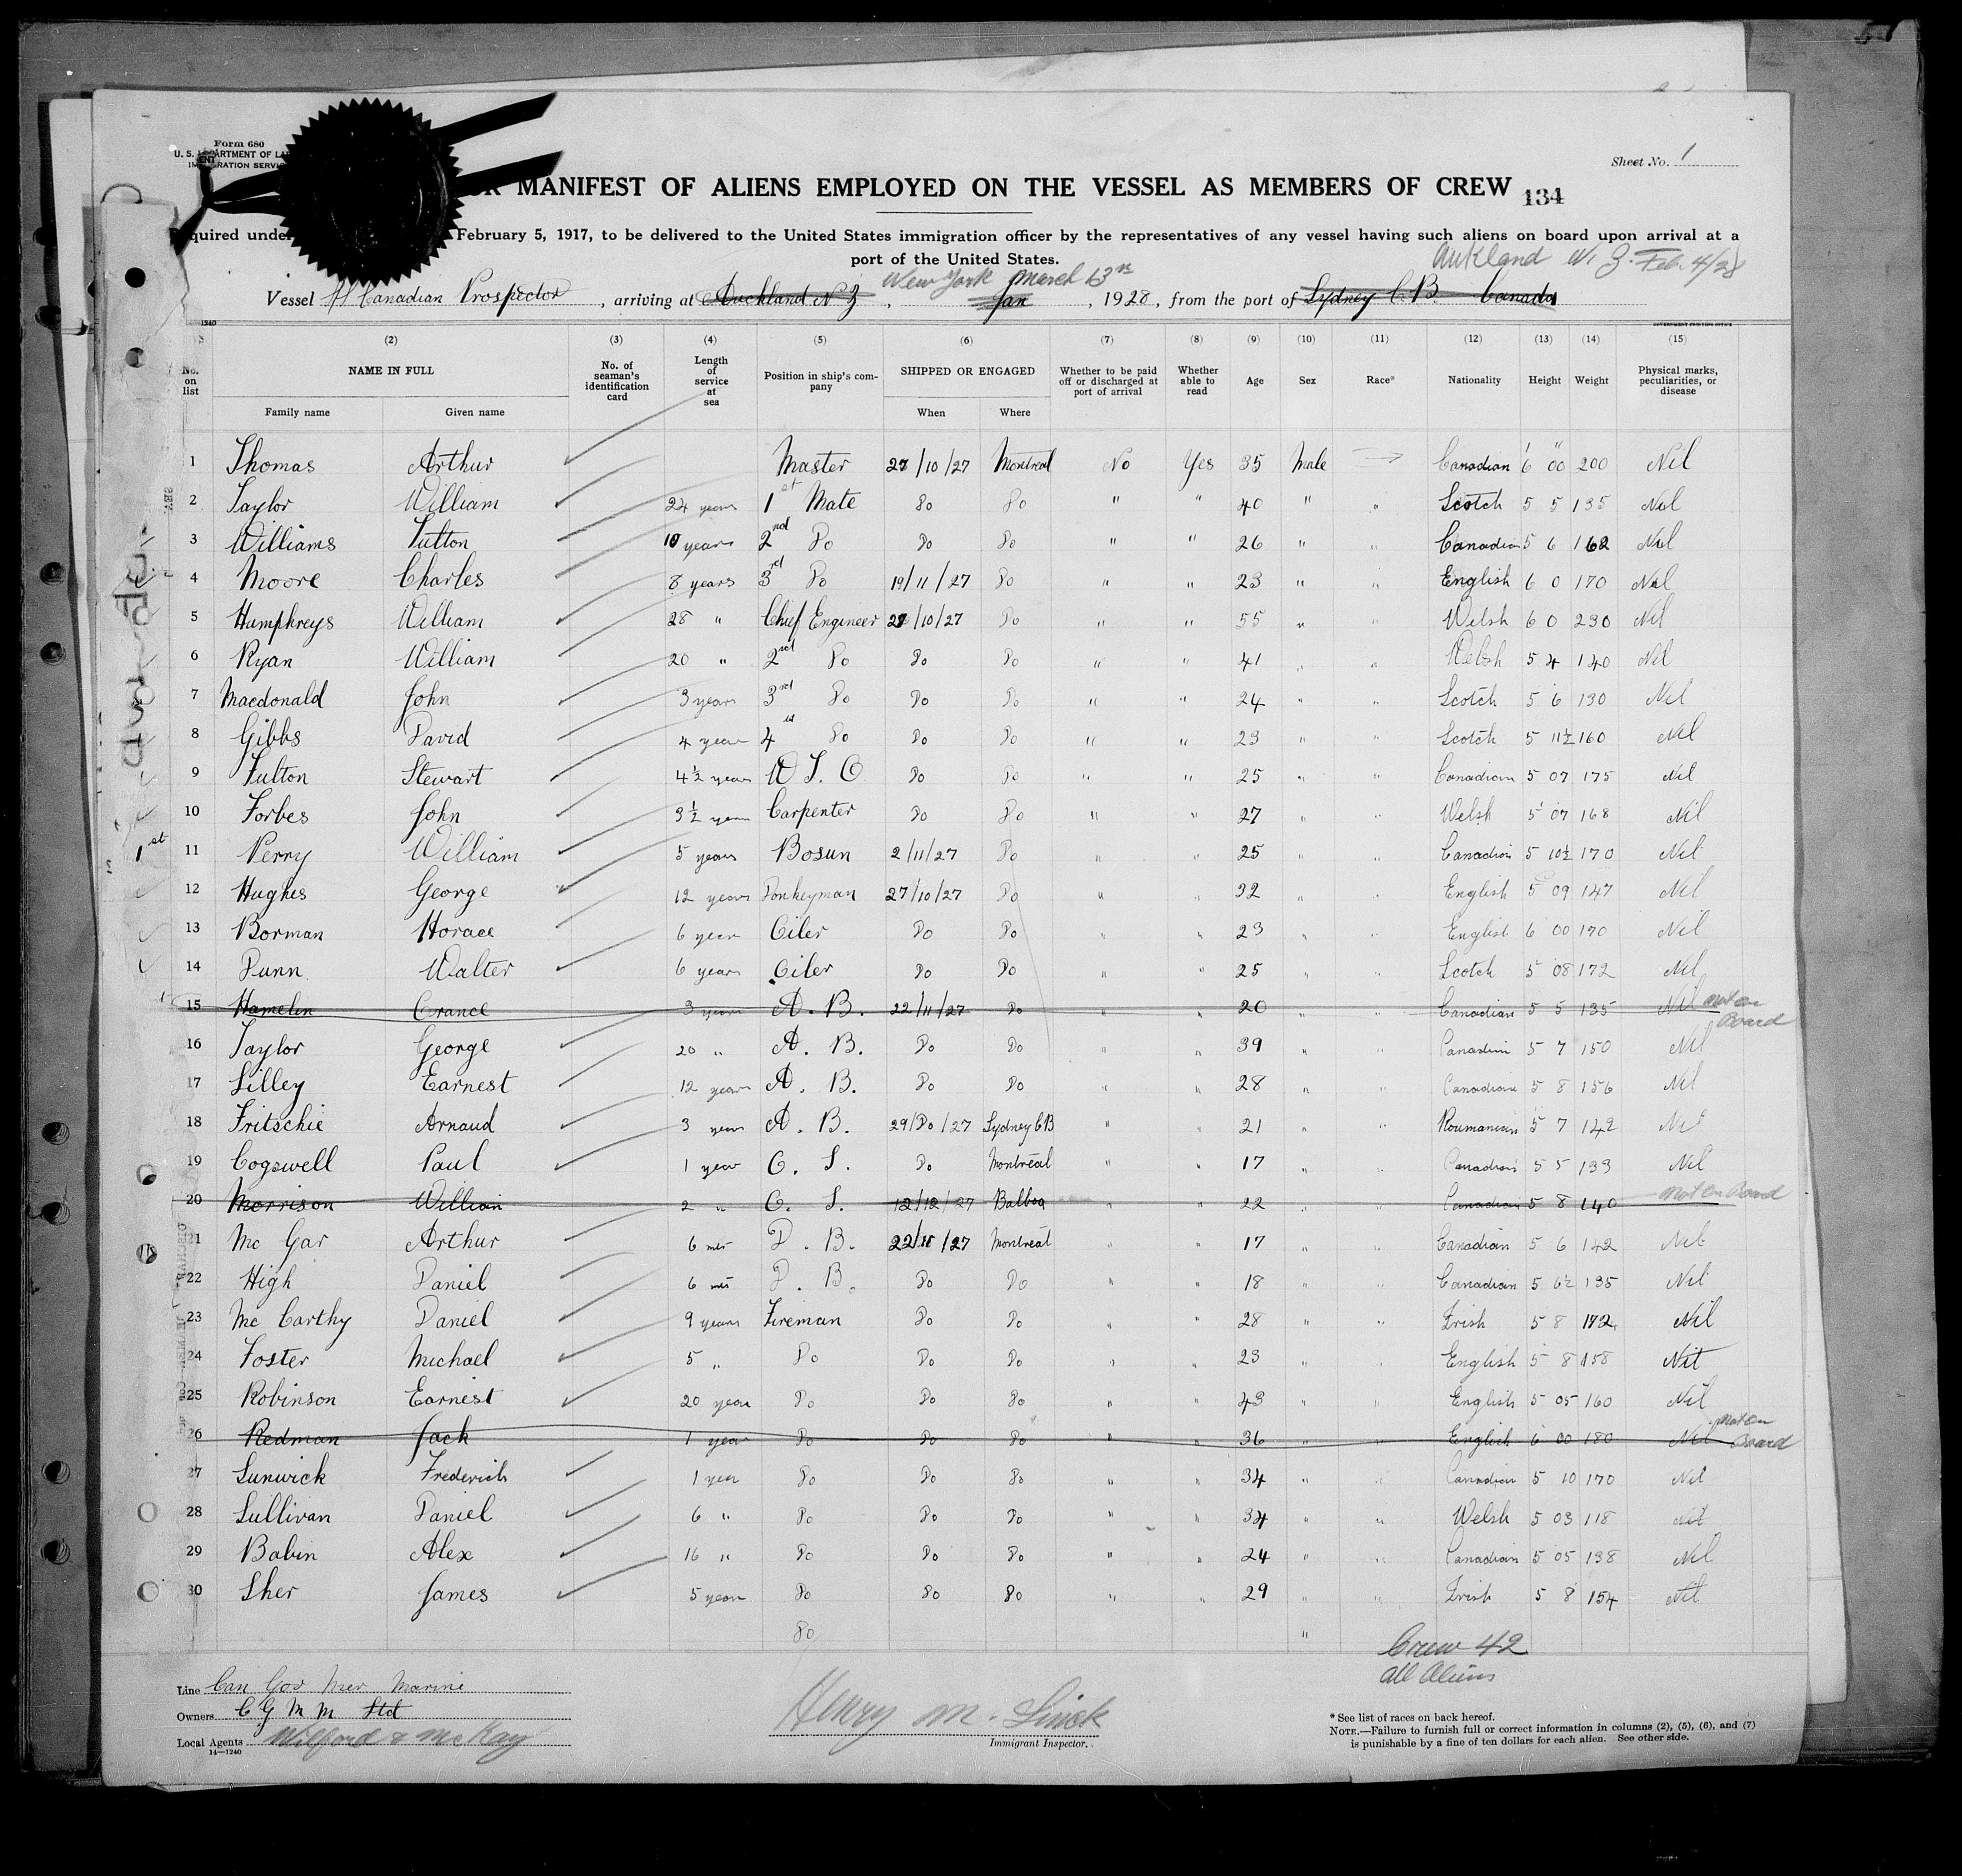 Form 680
U. S. DEPARTMENT OF LA
IMMIGRATION SERVIC
Sheet No. 1
OR MANIFEST OF ALIENS EMPLOYED ON THE VESSEL AS MEMBERS OF CREW 134
Required under February 5, 1917, to be delivered to the United States immigration officer by the representatives of any vessel having such aliens on board upon arrival at a
port of the United States.
Aukland N. Z. Feb. 4/28
New York March 13th
Vessel Canadian Prospector, arriving at Auckland N Z, Jan, 1928, from the port of Sydney C B Canada
(2) (3) (4) (5) (6) (7) (8) (9) (10) (11) (12) (13) (14) (15)
No. on list NAME IN FULL Family name Given name No. of seaman's identification card Length of service at sea Position in ship's company SHIPPED OR ENGAGED When Where Whether to be paid off or discharged at port of arrival Whether able to read Age Sex Race* Nationality Height Weight Physical marks, peculiarities, or disease
1 Thomas Arthur Master 27/10/27 Montreal No Yes 35 Male Canadian 6' 00" 200 Nil
2 Taylor William 24 years 1st Mate Do Do " " 40 " " Scotch 5 5 135 Nil
3 Williams Fulton 10 years 2nd Do Do Do " " 26 " " Canadian 5 6 162 Nil
4 Moore Charles 8 years 3rd Do 19/11/27 Do " " 23 " " English 6 0 170 Nil
5 Humphreys William 28 " Chief Engineer 27/10/27 Do " " 55 " " Welsh 6 0 230 Nil
6 Ryan William 20 " 2nd Do Do Do " " 41 " " Welsh 5 4 140 Nil
7 Macdonald John 3 years 3rd Do Do Do " " 24 " " Scotch 5 6 130 Nil
8 Gibbs David 4 year 4th Do Do Do " " 23 " " Scotch 5 11½ 160 Nil
9 Fulton Stewart 4½ years W T. O. Do Do " " 25 " " Canadian 5 07 175 Nil
10 Forbes John 3½ year Carpenter Do Do " " 27 " " Welsh 5 07 168 Nil
1st 11 Perry William 5 years Bosun 2/11/27 Do " " 25 " " Canadian 5 10½ 170 Nil
12 Hughes George 12 years Donkeyman 27/10/27 Do " " 32 " " English 5 09 147 Nil
13 Borman Horace 6 year Oiler Do Do " " 23 " " English 6 00 170 Nil
14 Dunn Walter 6 years Oiler Do Do " " 25 " " Scotch 5 08 172 Nil
15 Hamelin Orance 3 years A. B. 22/11/27 Do " " 20 " " Canadian 5 5 135 Nil not on Board
16 Taylor George 20 " A. B. Do Do " " 39 " " Canadian 5 7 150 Nil
17 Lilley Earnest 12 years A. B. Do Do " " 28 " " Canadian 5 8 156 Nil
18 Fritschie Arnaud 3 year A. B. 29/Do/27 Sydney C B " " 21 " " Roumanian 5 7 142 Nil
19 Cogswell Paul 1 year O. S. Do Montreal " " 17 " " Canadian 5 5 133 Nil
20 Morrison William 2 " O. S. 12/12/27 Balboa " " 22 " " Canadian 5 8 140 not on Board
21 Mc Gar Arthur 6 mts D. B. 22/11/27 Montreal " " 17 " " Canadian 5 6 142 Nil
22 High Daniel 6 mts D. B. Do Do " " 18 " " Canadian 5 6½ 135 Nil
23 Mc Carthy Daniel 9 years Fireman Do Do " " 28 " " Irish 5 8 172 Nil
24 Foster Michael 5 " Do Do Do " " 23 " " English 5 8 158 Nil
25 Robinson Earnest 20 year Do Do Do " " 43 " " English 5 05 160 Nil
26 Redman Jack 1 year Do Do Do " " 36 " " English 6 00 180 Nil not on Board
27 Lunwick Frederich 1 year Do Do Do " " 34 " " Canadian 5 10 170 Nil
28 Sullivan Daniel 6 " Do Do Do " " 34 " " Welsh 5 03 118 Nil
29 Babin Alex 16 " Do Do Do " " 24 " " Canadian 5 05 138 Nil
30 Sher James 5 year Do Do Do " " 29 " " Irish 5 8 154 Nil
Do "
Crew 42
All Aliens
Line Can Gov Mer Marine
Owners C G M M Ltd
Local Agents Wilford & McKay
14—1240
Henry M. Linck
Immigrant Inspector.
* See list of races on back hereof.
NOTE.—Failure to furnish full or correct information in columns (2), (5), (6), and (7)
is punishable by a fine of ten dollars for each alien. See other side.